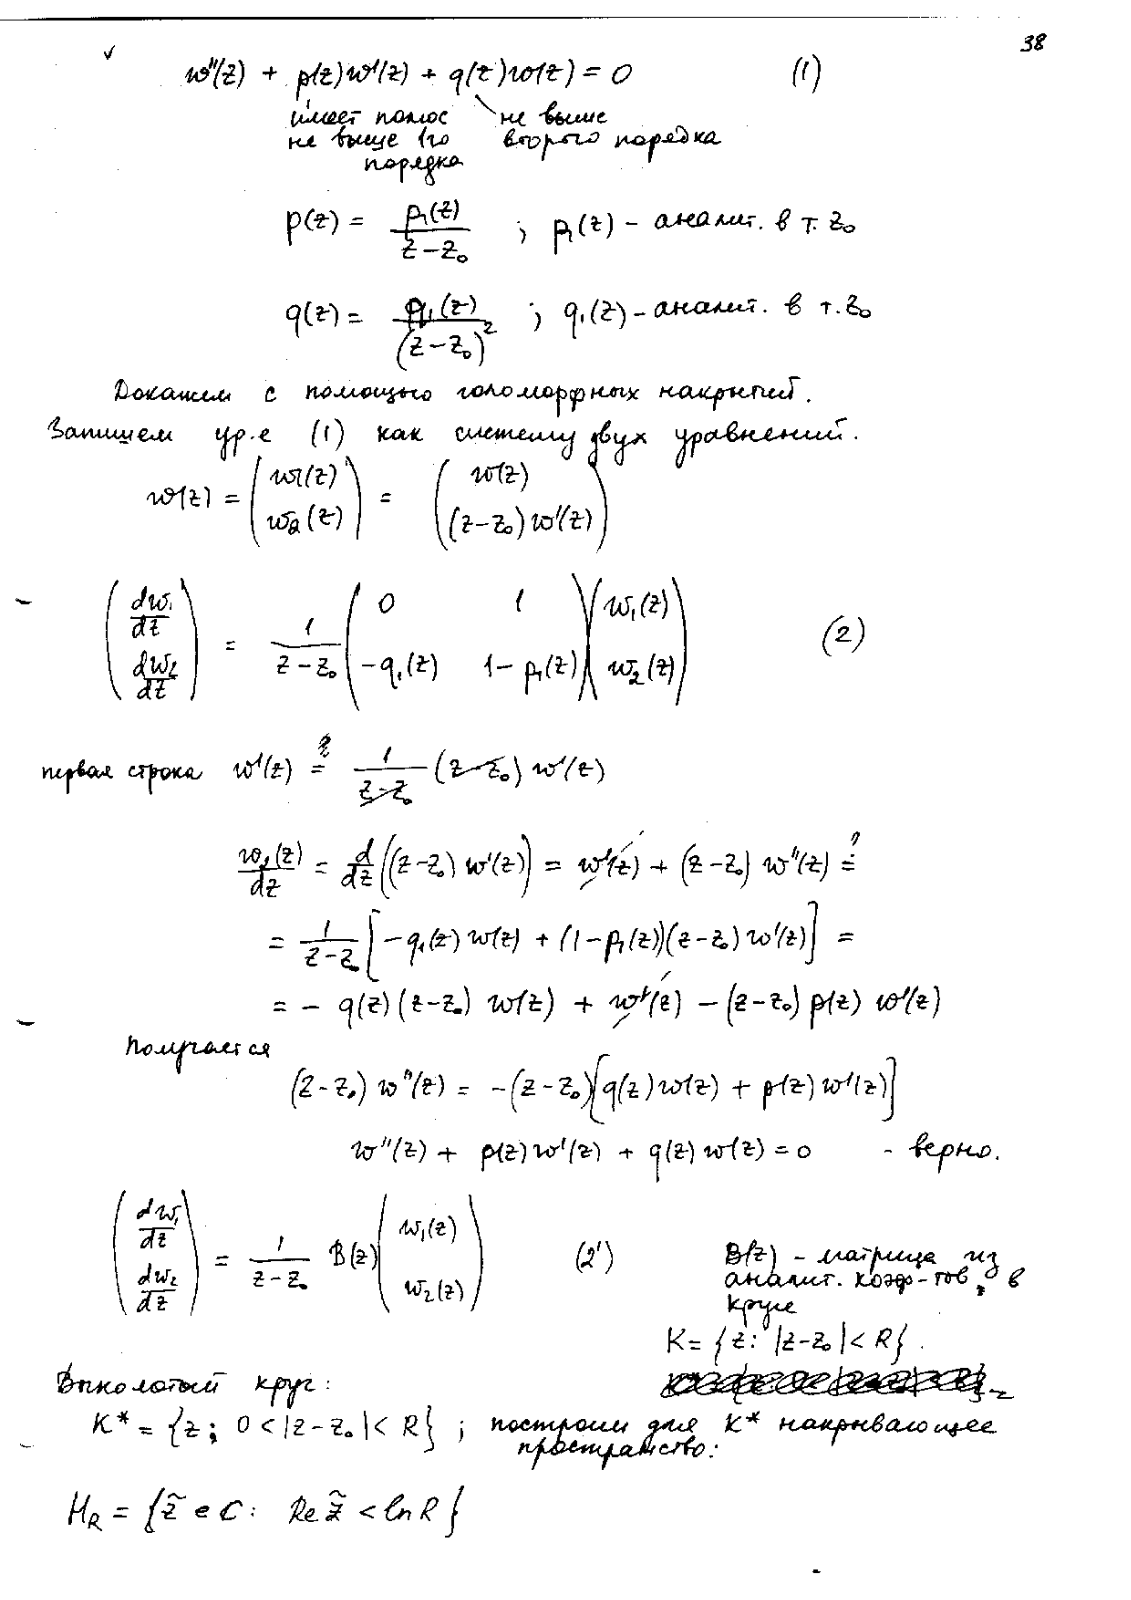 38
w''(z) + p(z)w'(z) + q(z)w(z) = 0 (1)
имеет полюс не выше
не выше 1го второго порядка
порядка
p(z) = p₁(z) / (z−z₀) ; p₁(z) – аналит. в т. z₀
q(z) = q₁(z) / (z−z₀)² ; q₁(z) – аналит. в т. z₀
Докажем с помощью голоморфных накрытий.
Запишем ур-е (1) как систему двух уравнений.
w(z) = ( w₁(z) ; w₂(z) ) = ( w(z) ; (z−z₀)w'(z) )
( dw₁/dz ; dw₂/dz ) = 1/(z−z₀) ( 0 1 ; −q₁(z) 1−p₁(z) ) ( w₁(z) ; w₂(z) ) (2)
первая строка w'(z) =? 1/(z−z₀) (z−z₀) w'(z)
w₂(z)/dz = d/dz ((z−z₀) w'(z)) = w'(z) + (z−z₀) w''(z) =?
= 1/(z−z₀) [−q₁(z) w(z) + (1−p₁(z))(z−z₀) w'(z)] =
= − q(z)(z−z₀) w(z) + w'(z) − (z−z₀) p(z) w'(z)
Получается
(z−z₀) w''(z) = −(z−z₀)[q(z)w(z) + p(z)w'(z)]
w''(z) + p(z)w'(z) + q(z)w(z) = 0 - верно.
( dw₁/dz ; dw₂/dz ) = 1/(z−z₀) B(z) ( w₁(z) ; w₂(z) ) (2')
B(z) – матрица из
аналит. коэф-тов, в
круге
K = {z: |z−z₀| < R}.
Выколотый круг:
K* = {z: 0 < |z−z₀| < R} ; построим для K* накрывающее
пространство:
H_R = {z̃ ∈ C: Re z̃ < ln R}